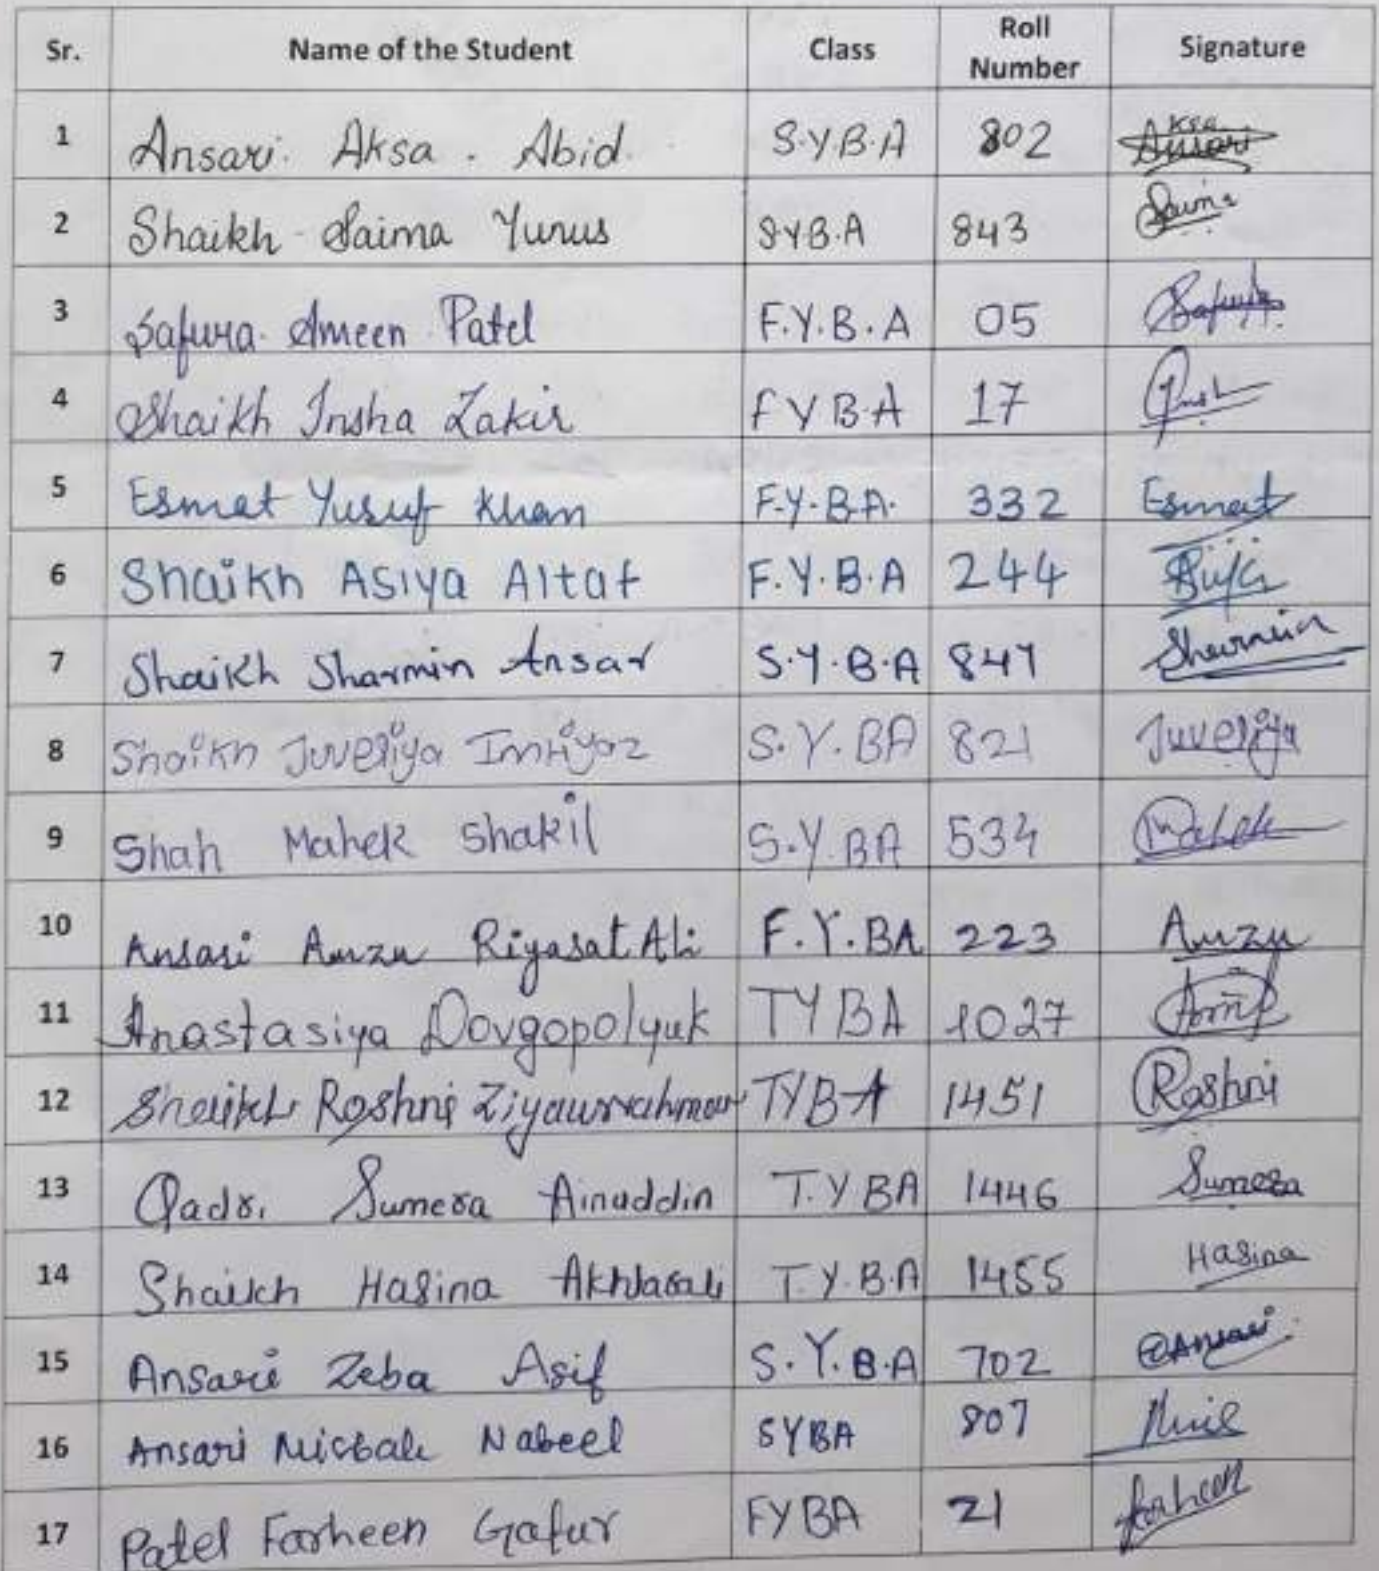 Sr. Name of the Student Class Roll Number Signature
1 Ansari. Aksa. Abid. S.Y.B.A 802 Ksa Ansari
2 Shaikh Saima Yunus S.Y.B.A 843 Saima
3 Safura. Ameen Patel F.Y.B.A 05 Safura
4 Shaikh Insha Zakir F Y B.A 17
5 Esmat Yusuf Khan F.Y.B.A. 332 Esmat
6 Shaikh Asiya Altaf F.Y.B.A 244
7 Shaikh Sharmin Ansar S.Y.B.A 847 Sharmin
8 Shaikh Juveriya Imtiyaz S.Y.BA 821 Juveriya
9 Shah Mahek Shakil S.Y.BA 534 Mahek
10 Ansari Arzu Riyasat Ali F.Y.BA 223 Arzu
11 Anastasiya Dovgopolyuk TYBA 1027
12 Shaikh Roshni Ziyaurrahman TYBA 1451 Roshni
13 Qadri Sumera Ainuddin T.Y BA 1446 Sumera
14 Shaikh Hasina T.Y.B.A 1455 Hasina
15 Ansari Zeba Asif S.Y.B.A 702 @Ansari
16 Ansari Misbah Nabeel SYBA 807
17 Patel Farheen Gafur FYBA 21 farheen